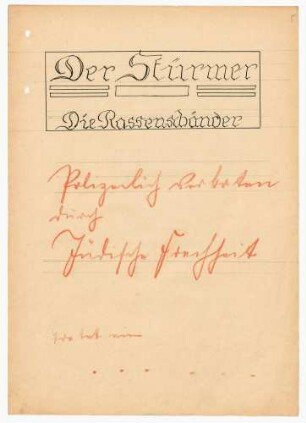 Der Stürmer
Die Rassenschänder
Polizeilich verboten
durch
Jüdische Frechheit